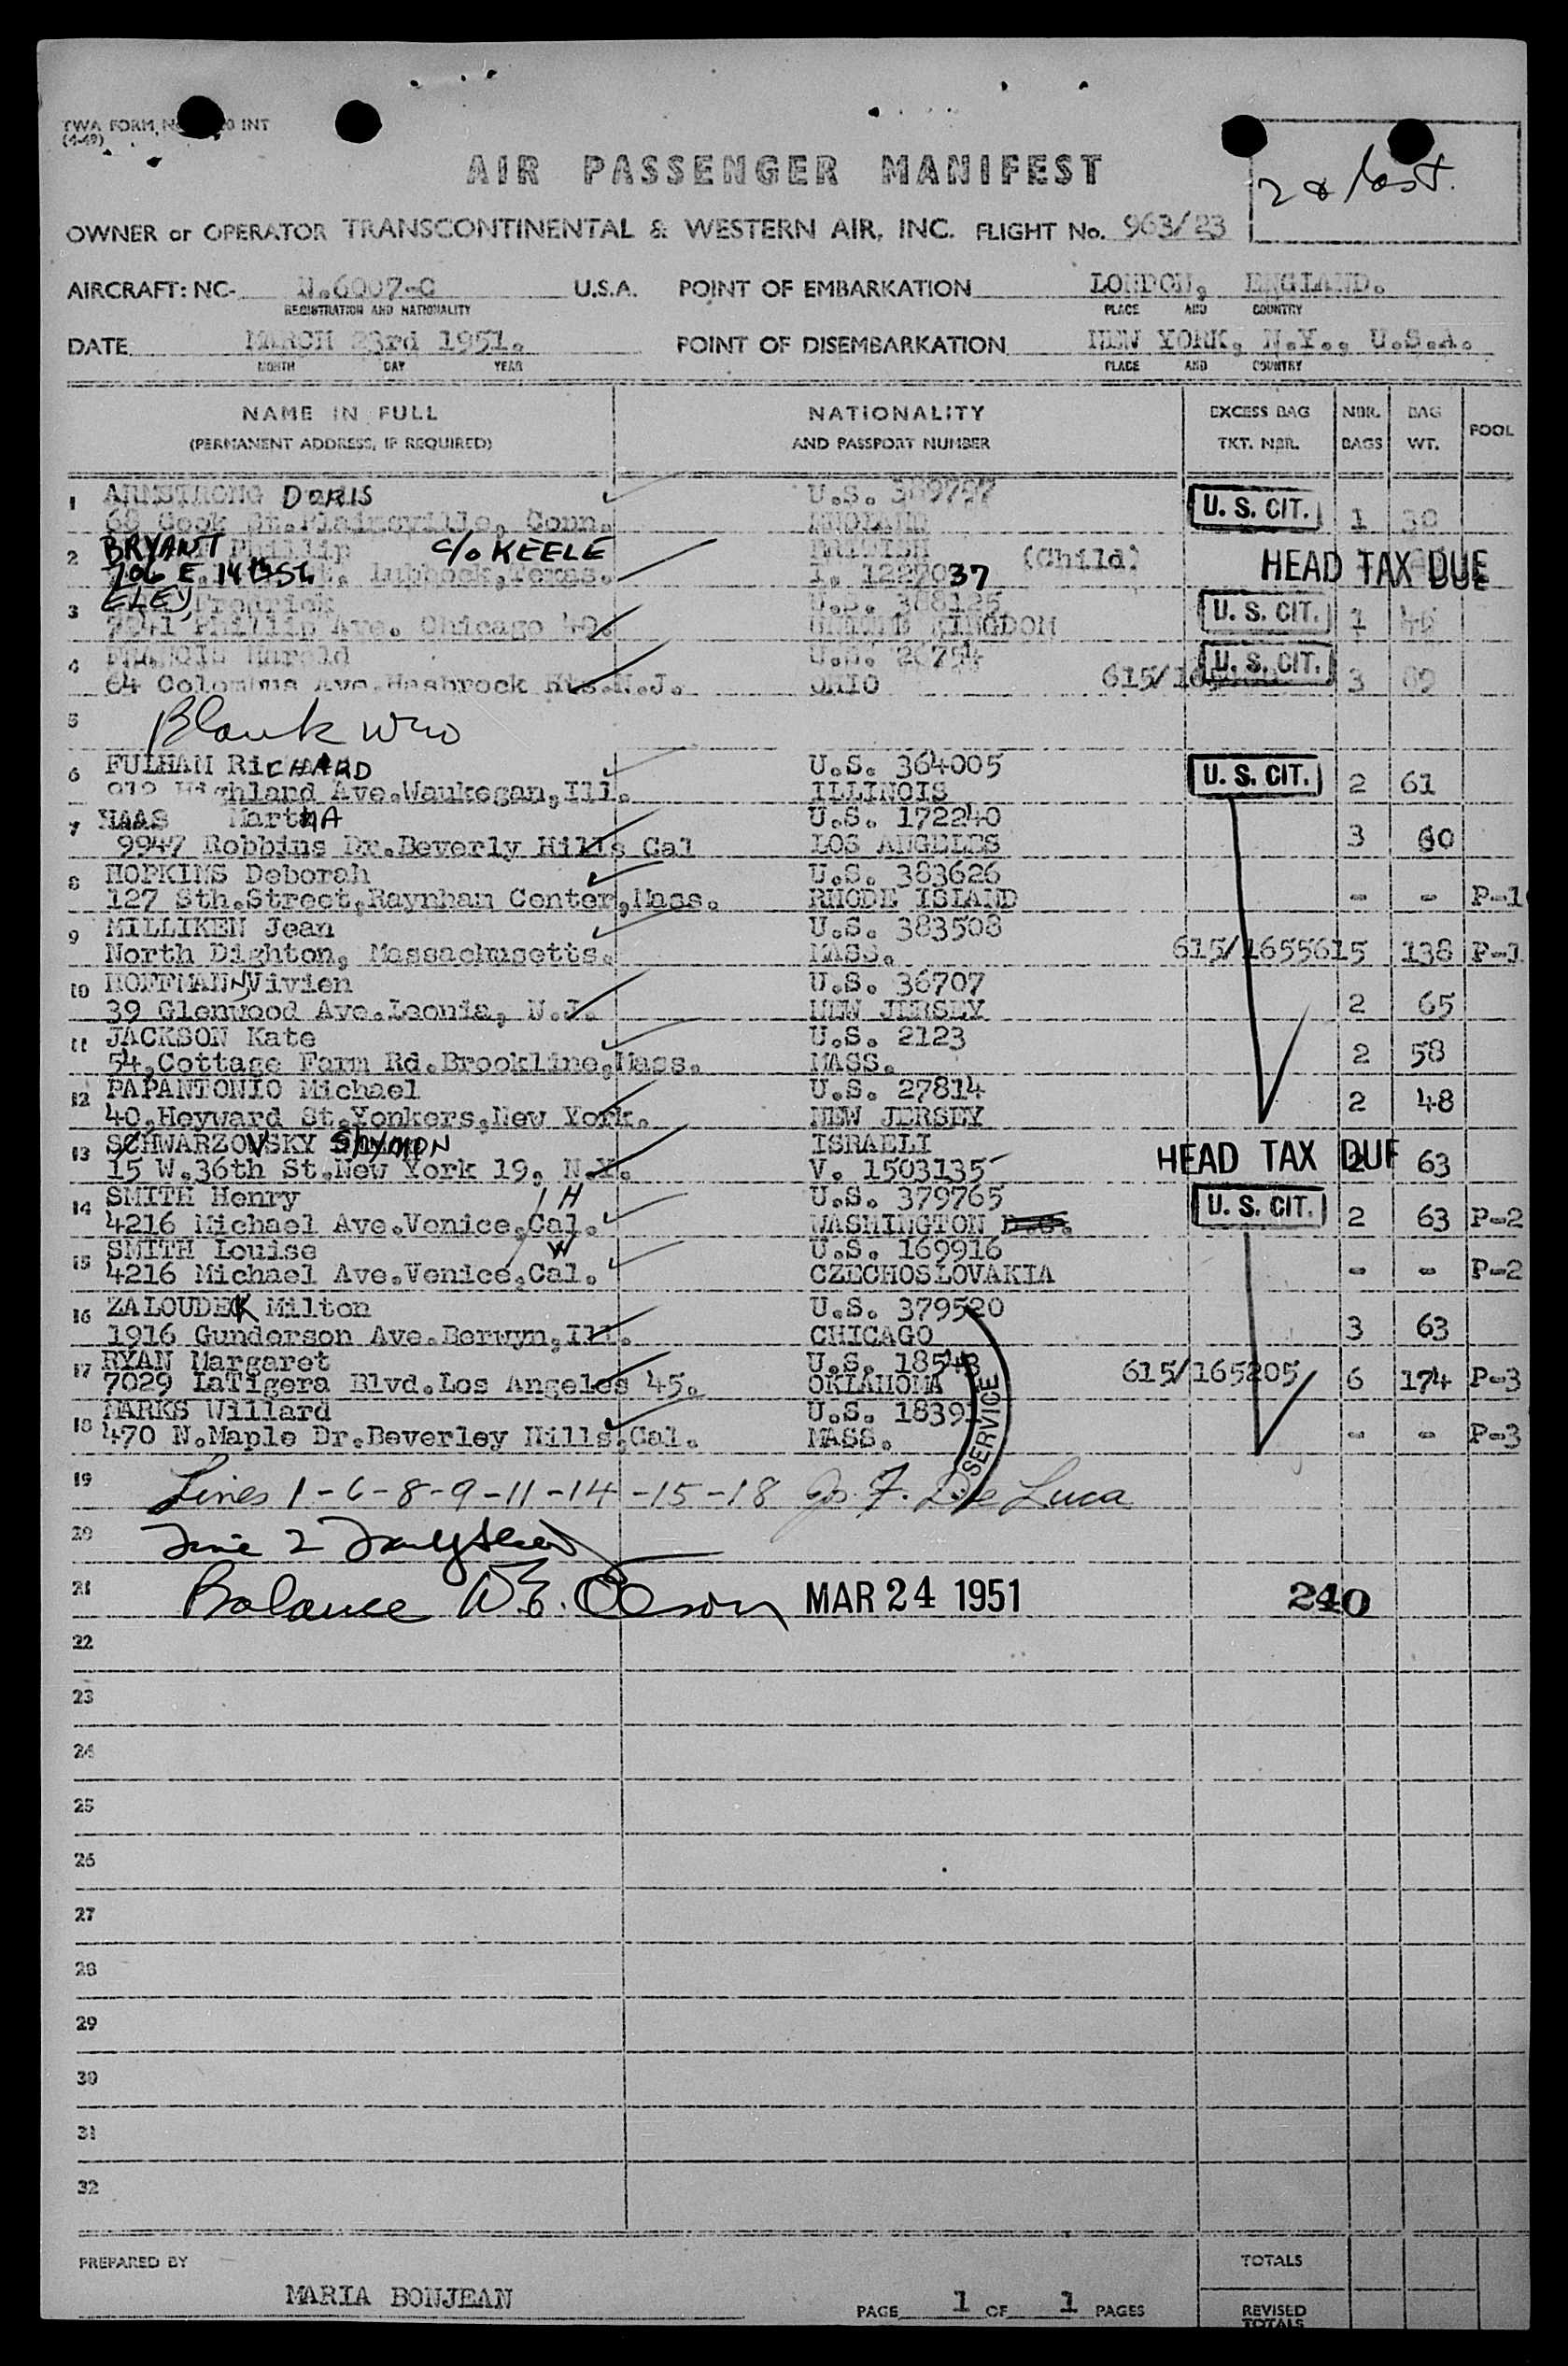 TWA FORM No 0 INT
(4-49)
AIR PASSENGER MANIFEST
2 & last.
OWNER or OPERATOR TRANSCONTINENTAL & WESTERN AIR, INC. FLIGHT No. 963/23
AIRCRAFT: NC- N.6007-C U.S.A. POINT OF EMBARKATION LONDON, ENGLAND.
REGISTRATION AND NATIONALITY PLACE AND COUNTRY
DATE MARCH 23rd 1951. POINT OF DISEMBARKATION NEW YORK, N.Y., U.S.A.
MONTH DAY YEAR PLACE AND COUNTRY
NAME IN FULL NATIONALITY EXCESS BAG NBR. BAG POOL
(PERMANENT ADDRESS, IF REQUIRED) AND PASSPORT NUMBER TKT. NBR. BAGS WT.
1 ARMSTRONG DORIS U.S. 389797 U.S. CIT.
68 Cook St. Plainville, Conn. 1 30
2 BRYANT Phillip c/o KEELE BRITISH (Child) HEAD TAX DUE
706 E. 14th St. Lubbock, Texas. L. 1227037
3 ELEY, Fredrick U.S. 388125 U.S. CIT.
7941 Phillip Ave. Chicago 49. UNITED KINGDOM 1 46
4 FRANCIS Harold U.S. 26754 U.S. CIT.
64 Columbus Ave. Hasbrock Hts. N.J. OHIO 615/165 3 89
5 Blank WEO
6 FULHAM RICHARD U.S. 364005 U.S. CIT.
Highland Ave. Waukegan, Ill. ILLINOIS 2 61
7 HAAS MartHA U.S. 172240
9947 Robbins Dr. Beverly Hills Cal LOS ANGELES 3 60
8 HOPKINS Deborah U.S. 383626
127 Sth. Street, Raynham Center, Mass. RHODE ISLAND - - P-1
9 MILLIKEN Jean U.S. 383508
North Dighton, Massachusetts. MASS. 615/165561 5 138 P-1
10 HOFFMANN Vivien U.S. 36707
39 Glenwood Ave. Leonia, N.J. NEW JERSEY 2 65
11 JACKSON Kate U.S. 2123
54, Cottage Farm Rd. Brookline, Mass. MASS. 2 58
12 PAPANTONIO Michael U.S. 27814
40, Heyward St. Yonkers, New York. NEW JERSEY 2 48
13 SCHWARZOVSKY SHYMON ISRAELI HEAD TAX DUE
15 W. 36th St. New York 19, N.Y. V. 1503135 2 63
14 SMITH Henry H U.S. 379765 U.S. CIT.
4216 Michael Ave. Venice, Cal. WASHINGTON D.C. 2 63 P-2
15 SMITH Louise W U.S. 169916
4216 Michael Ave. Venice, Cal. CZECHOSLOVAKIA - - P-2
16 ZALOUDEK Milton U.S. 379520
1916 Gunderson Ave. Berwyn, Ill. CHICAGO 3 63
17 RYAN Margaret U.S. 18543
7029 LaTigera Blvd. Los Angeles 45. OKLAHOMA 615/165205 6 174 P-3
18 MARKS Willard U.S. 18391
470 N. Maple Dr. Beverley Hills, Cal. MASS. SERVICE - - P-3
19 Lines 1-6-8-9-11-14-15-18 Jo. F. De Luca
20 Line 2
21 Balance W.E. Olson MAR 24 1951 240
22
23
24
25
26
27
28
29
30
31
32
PREPARED BY TOTALS
MARIA BONJEAN PAGE 1 OF 1 PAGES REVISED TOTALS